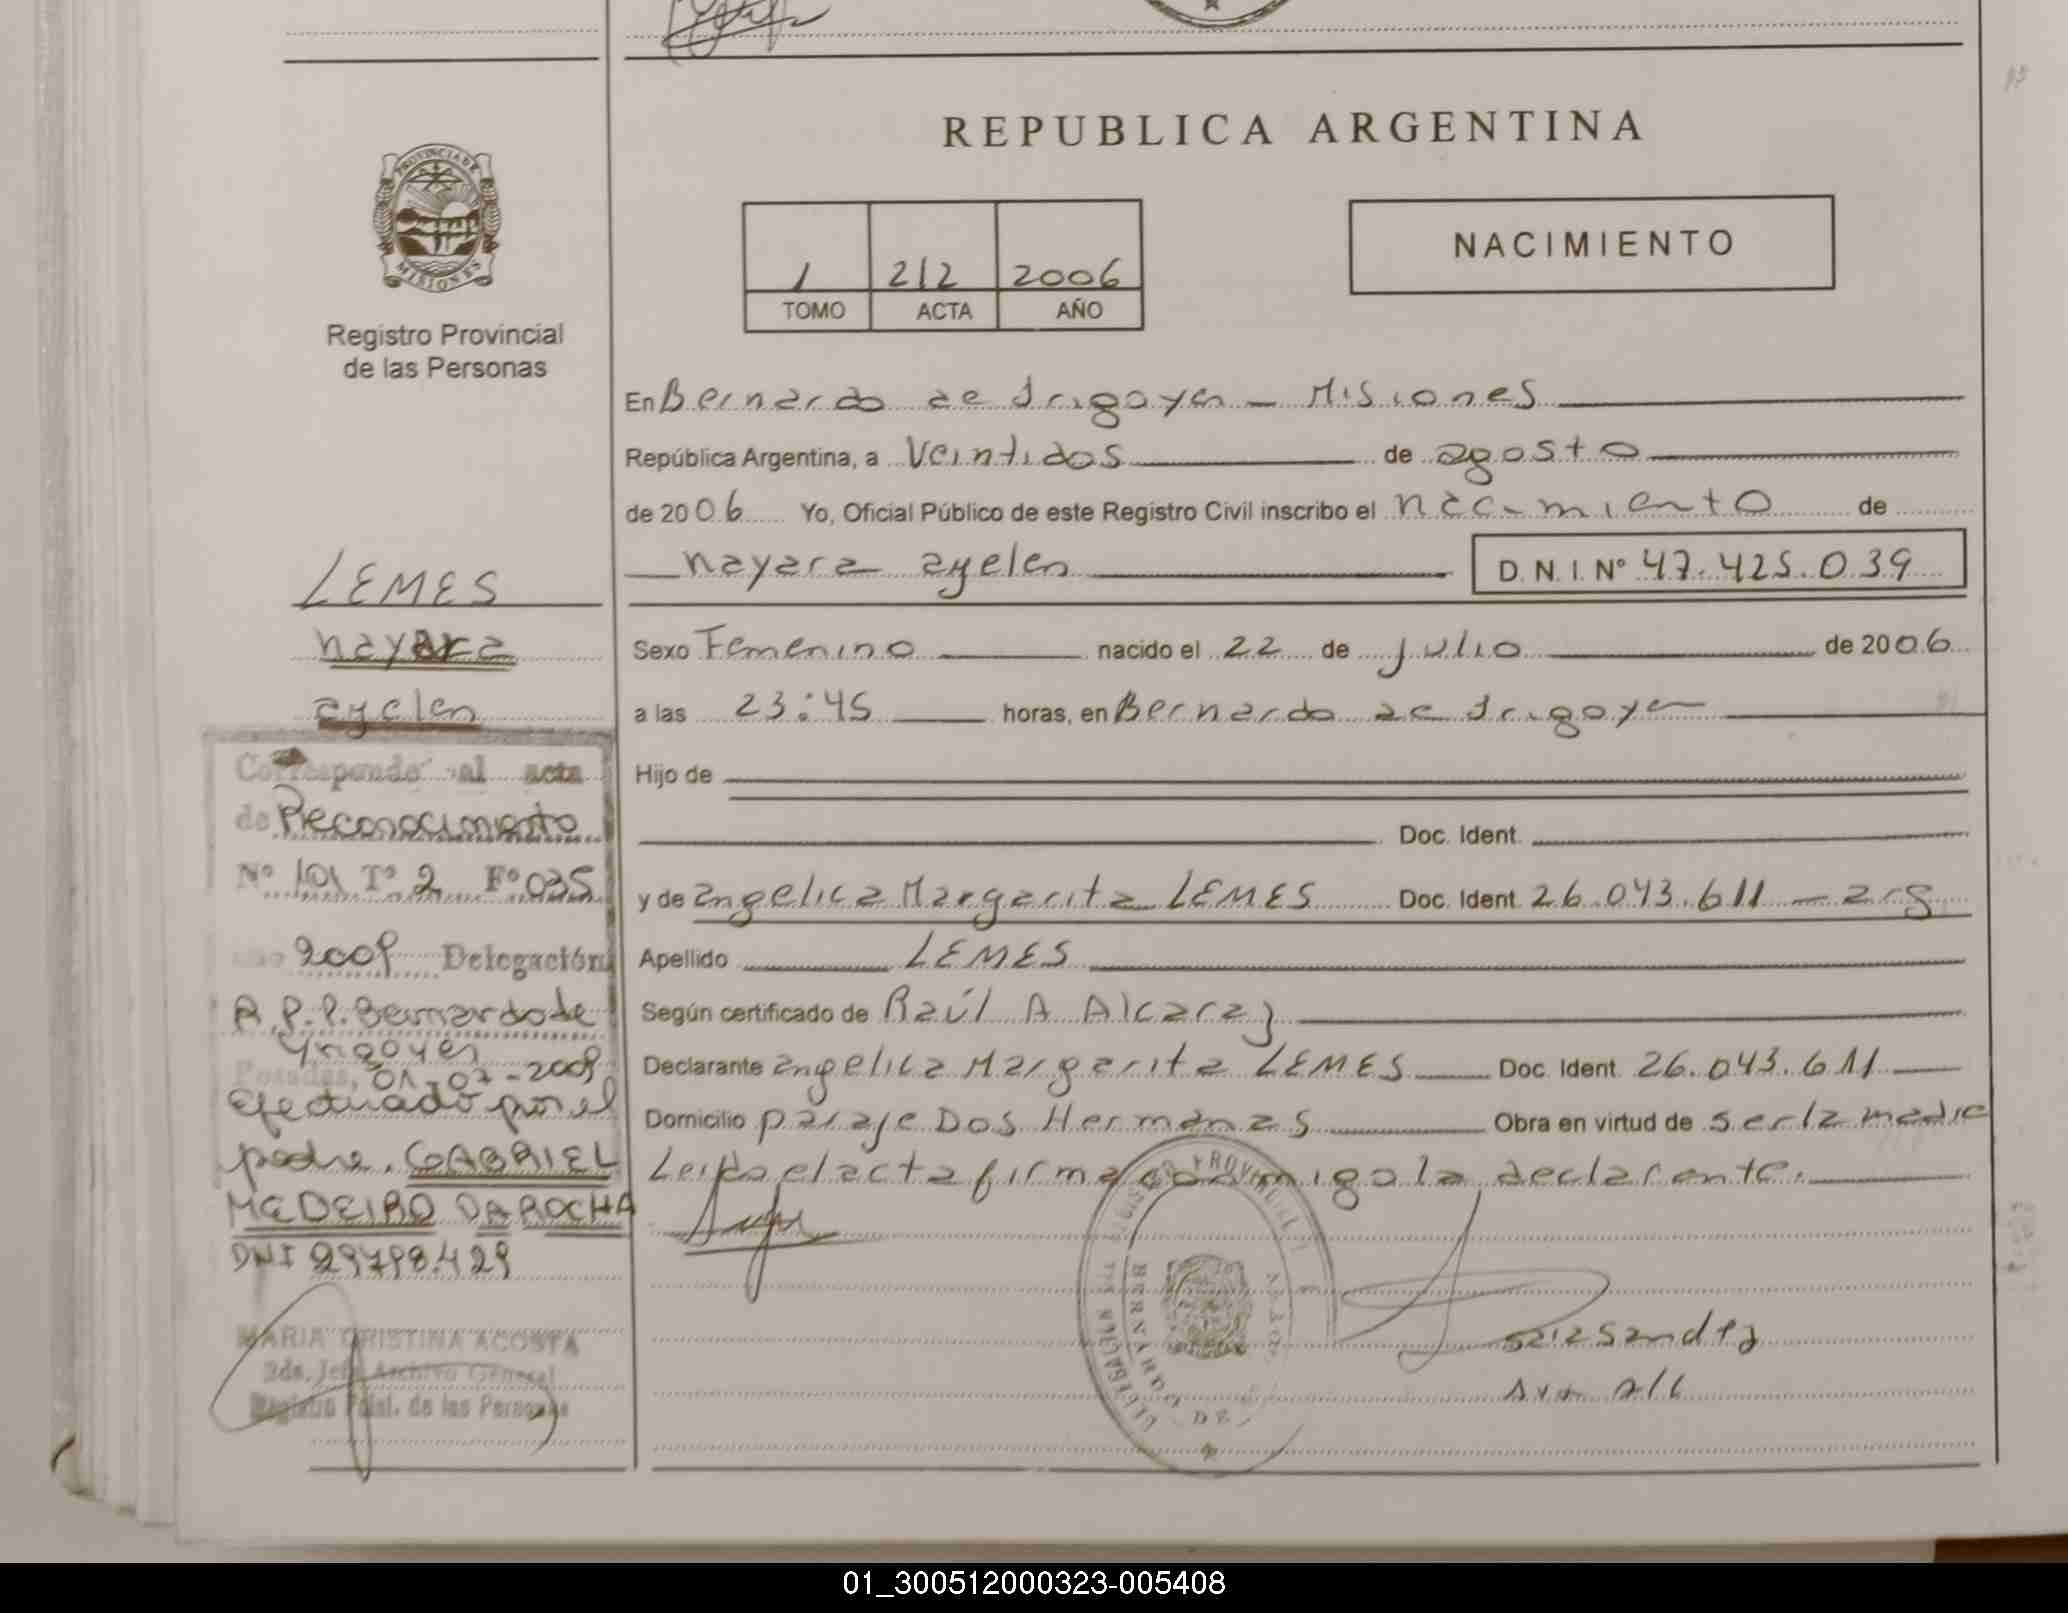 REPUBLICA ARGENTINA
PROVINCIA DE
MISIONES
Registro Provincial
de las Personas
1 212 2006
TOMO ACTA AÑO
NACIMIENTO
En Bernardo de Irigoyen - Misiones
República Argentina, a Veintidos de agosto
de 2006 Yo, Oficial Público de este Registro Civil inscribo el nacimiento de
nayara ayelen D.N.I. Nº 47.425.039
Sexo Femenino nacido el 22 de julio de 2006
a las 23:45 horas, en Bernardo de Irigoyen
Hijo de
Doc. Ident.
y de angelica Margarita LEMES Doc. Ident. 26.043.611 - arg
Apellido LEMES
Según certificado de Raúl A Alcaraz
Declarante angelica Margarita LEMES Doc. Ident. 26.043.611
Domicilio paraje Dos Hermanas Obra en virtud de serla madre
Leida el acta firma conmigo la declarante.
LEMES
nayara
ayelen
Corresponde al acta
de Reconocimento
Nº 101 Tº 2 Fº 035
año 2009 Delegación
R.P.P. Bernardo de
Yrigoyen
Posadas, 01-07-2009
efectuado por el
padre, GABRIEL
MEDEIRO DA ROCHA
DNI 29798.429
MARIA CRISTINA ACOSTA
2da. Jefe Archivo General
Registro Pcial. de las Personas
BERNARDO DE
01_300512000323-005408